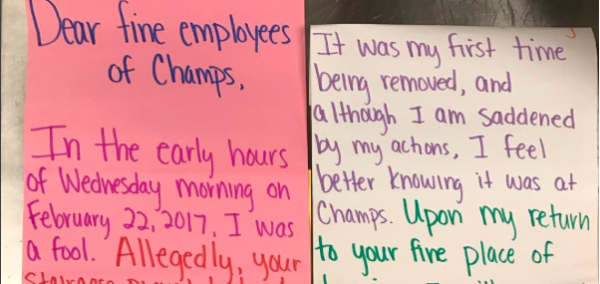 Dear fine employees
of Champs,
In the early hours
of Wednesday morning on
February 22, 2017, I was
a fool. Allegedly, your
It was my first time
being removed, and
although I am saddened
by my actions, I feel
better knowing it was at
Champs. Upon my return
to your fine place of